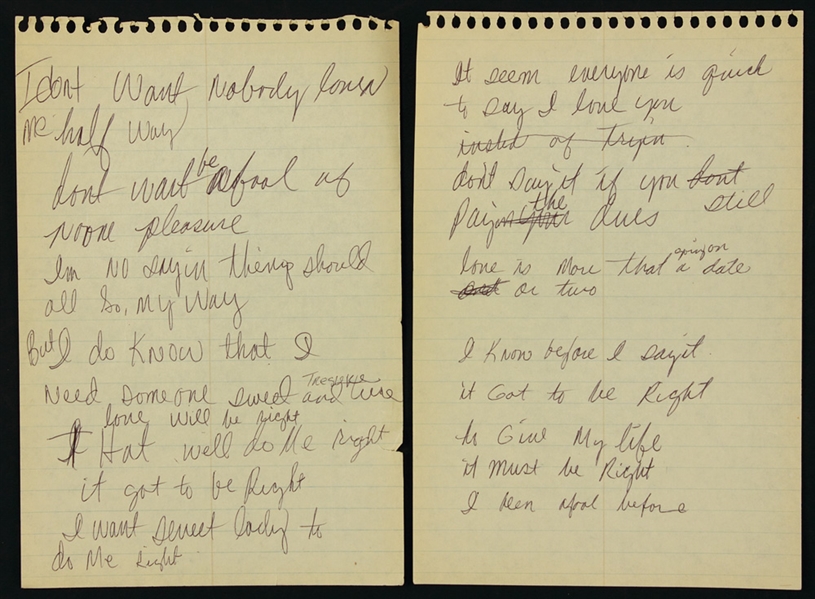 I dont want Nobody loven
me half way
dont want be afool of
Noone pleasure
Im NO sayin things should
all Go, my way
But I do KNOW that I
Need someone sweet and
love will be right
That well do Me right
it got to be Right
I want sweet lady to
do Me Right
It seem everyone is quick
to say I love you
insted of tripin
dont say it if you dont
the
dues still
love is More that a date
or two
I Know before I say it
it Got to be Right
to Give My life
it Must be Right
I been afool before